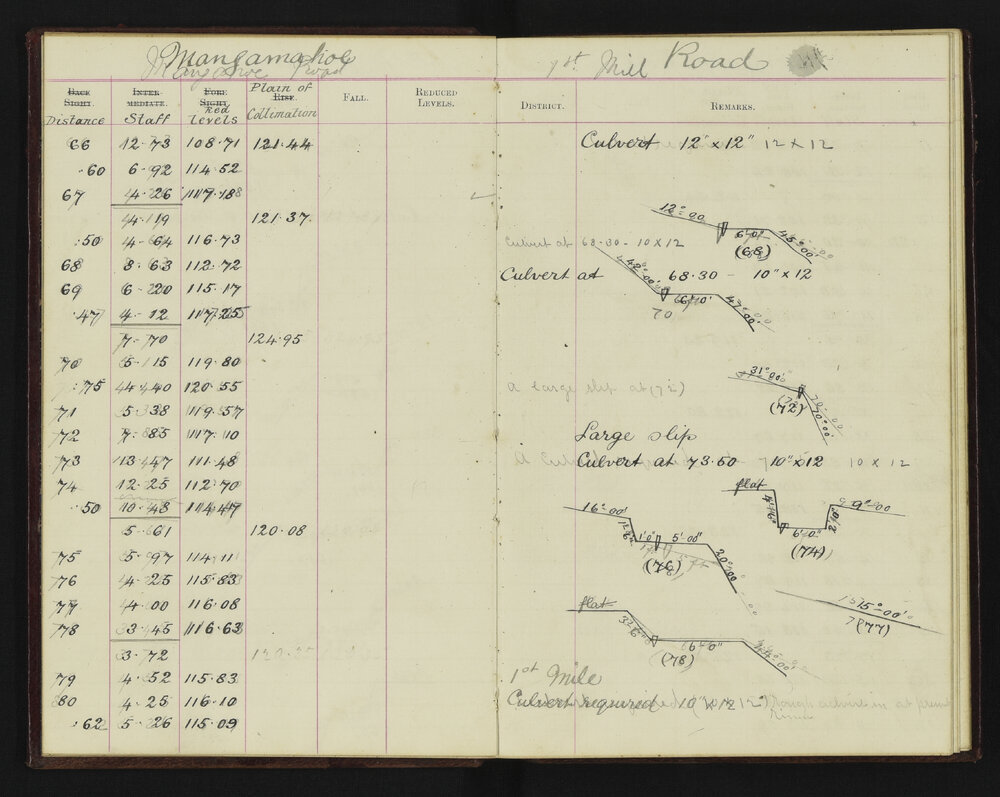 Mangamahoe
Mangahoe Road
BACK SIGHT. INTER- MEDIATE. FORE SIGHT. Plain of RISE. FALL. REDUCED LEVELS.
Distance Staff Red levels Collimation
66 12.73 108.71 121.44
.60 6.92 114.52
67 4.26 117.18
4.19 121.37
.50 4.64 116.73
68 8.63 112.72
69 6.20 115.17
.47 4.12 117.25
7.70 124.95
70 5.15 119.80
.75 4.40 120.55
71 5.38 119.57
72 7.85 117.10
73 13.47 111.48
74 12.25 112.70
.50 10.48 114.47
5.61 120.08
75 5.97 114.11
76 4.25 115.83
77 4.00 116.08
78 3.45 116.63
3.72
79 4.52 115.83
80 4.25 116.10
.62 5.26 115.09
1st Mill Road
DISTRICT. REMARKS.
Culvert 12" x 12" 12 x 12
12°.00
6'.0"
45°.00'
(68)
Culvert at 68.30 - 10 x 12
42°.00'
Culvert at 68.30 - 10" x 12
6'.0"
47°.00'
70
31°.00'
A large slip at (72)
(72)
70°.00'
Large slip
Culvert at 73.50 - 10" x 12 10 x 12
flat
9°.00'
6'.0"
(74)
16°.00'
1'.0" 5'.00"
5 ft
(76)
20°.00
15°.00'
(77)
flat
3'.6"
6'.0"
(78)
1st Mile
Culvert required 10" x 12